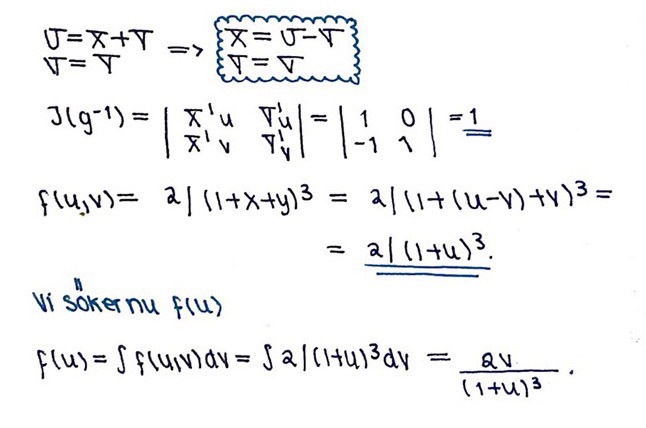 U=X+Y => X=U-Y
V=Y Y=V
J(g⁻¹)= | X'u Y'u | = | 1 0 | =1
| X'v Y'v | | -1 1 |
f(u,v)= 2/(1+x+y)³ = 2/(1+(u-v)+v)³ =
= 2/(1+u)³.
Vi söker nu f(u)
f(u)=∫f(u,v)dv=∫2/(1+u)³dv = 2v/(1+u)³.